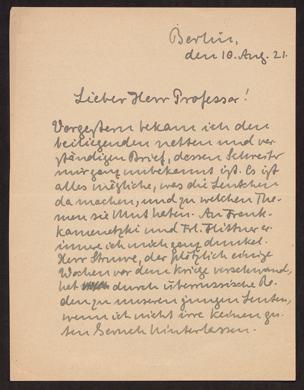 Berlin,
den 10. Aug. 21.
Lieber Herr Professor!
Vorgestern bekam ich den
beiliegenden netten und ver-
ständigen Brief, dessen Schreiber
mir ganz unbekannt ist. Es ist
alles mögliche, was die Leutchen
da machen, und zu welchen The-
men sie Mut haben. An Frank-
kamenetzki und Frl. Flittner er-
innere ich mich ganz dunkel.
Herr Struwe, der plötzlich einige
Wochen vor dem Kriege verschwand,
hat durch überrussische Re-
den zu unseren jungen Leuten,
wenn ich nicht irre keinen gu-
ten Geruch hinterlassen.